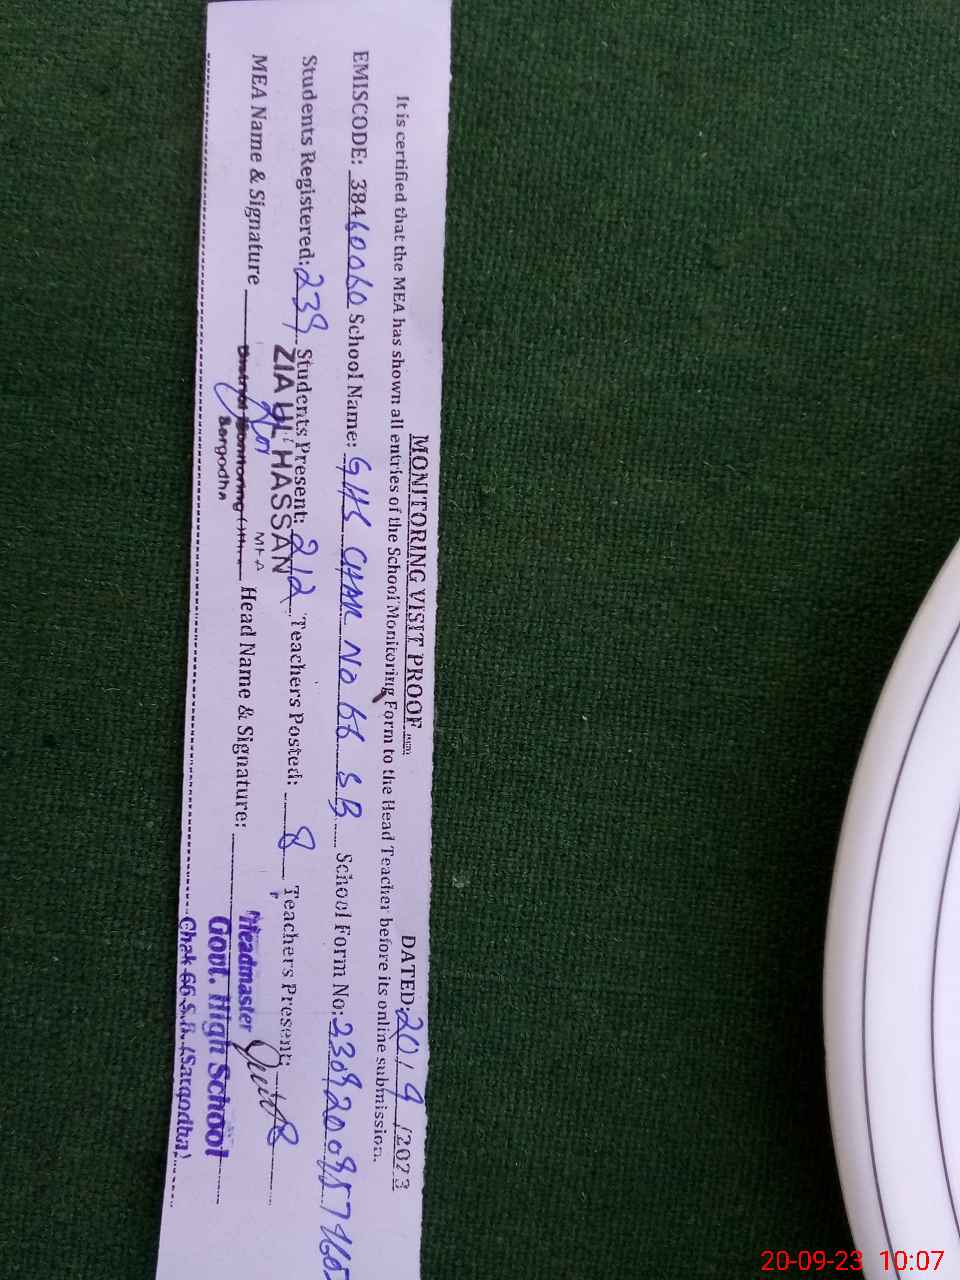 MONITORING VISIT PROOF
DATED: 20/9/2023
It is certified that the MEA has shown all entries of the School Monitoring Form to the Head Teacher before its online submission.
EMISCODE: 38460060 School Name: GHS CHAK NO 66 SB School Form No:
Students Registered: 239 Students Present: 212 Teachers Posted: 8 Teachers Present: 8
MEA Name & Signature Head Name & Signature:
ZIA UL HASSAN
MEA
Sargodha
Headmaster
Govt. High School
Chak 66 S.B. (Sargodha)
20-09-23 10:07